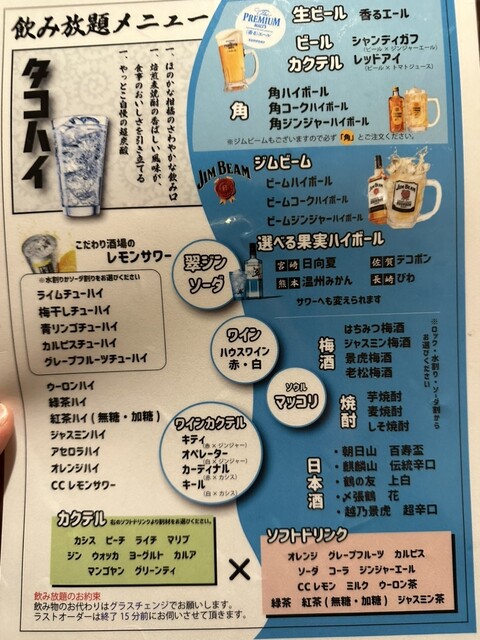 飲み放題メニュー
タコハイ
一、ほのかな柑橘のさわやかな飲み口
一、焙煎麦焼酎の香ばしい風味が、
食事のおいしさを引き立てる
一、やっとこ自慢の超炭酸
The PREMIUM MALT'S
香るエール
生ビール 香るエール
ビール
カクテル
シャンディガフ
(ビール×ジンジャーエール)
レッドアイ
(ビール×トマトジュース)
角
角ハイボール
角コークハイボール
角ジンジャーハイボール
※ジムビームもございますので必ず「角」とご注文ください。
JIM BEAM
ジムビーム
ビームハイボール
ビームコークハイボール
ビームジンジャーハイボール
JIM BEAM
こだわり酒場の
レモンサワー
※水割りかソーダ割りをお選びください
ライムチューハイ
梅干しチューハイ
青リンゴチューハイ
カルピスチューハイ
グレープフルーツチューハイ
翠ジン
ソーダ
選べる果実ハイボール
宮崎 日向夏 佐賀 デコポン
熊本 温州みかん 長崎 びわ
サワーへも変えられます
ワイン
ハウスワイン
赤・白
ソウル
マッコリ
※ロック・水割り・ソーダ割から
お選びください
梅酒
はちみつ梅酒
ジャスミン梅酒
景虎梅酒
老松梅酒
焼酎
芋焼酎
麦焼酎
しそ焼酎
日本酒
・朝日山 百寿盃
・麒麟山 伝統辛口
・鶴の友 上白
・〆張鶴 花
・越乃景虎 超辛口
ウーロンハイ
緑茶ハイ
紅茶ハイ(無糖・加糖)
ジャスミンハイ
アセロラハイ
オレンジハイ
CCレモンサワー
ワインカクテル
キティ
(赤×ジンジャー)
オペレーター
(白×ジンジャー)
カーディナル
(赤×カシス)
キール
(白×カシス)
カクテル 右のソフトドリンクより割材をお選びください。
カシス ピーチ ライチ マリブ
ジン ウォッカ ヨーグルト カルア
マンゴヤン グリーンティ
×
ソフトドリンク
オレンジ グレープフルーツ カルピス
ソーダ コーラ ジンジャーエール
CCレモン ミルク ウーロン茶
緑茶 紅茶(無糖・加糖) ジャスミン茶
飲み放題のお約束
飲み物のお代わりはグラスチェンジでお願いします。
ラストオーダーは終了15分前にお伺いさせて頂きます。